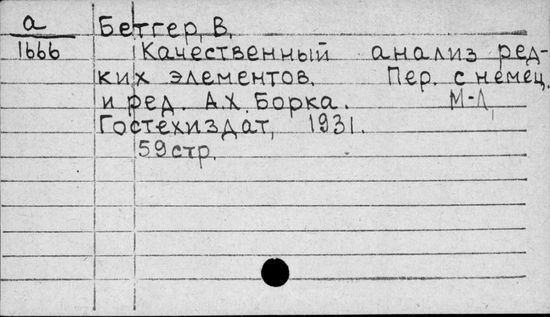 а Бетгер, В.
1666 Качественный анализ ред-
ких элементов. Пер. с немец.
и ред. А.Х. Борка. М-Л,
Гостехиздат, 1931.
59 стр.